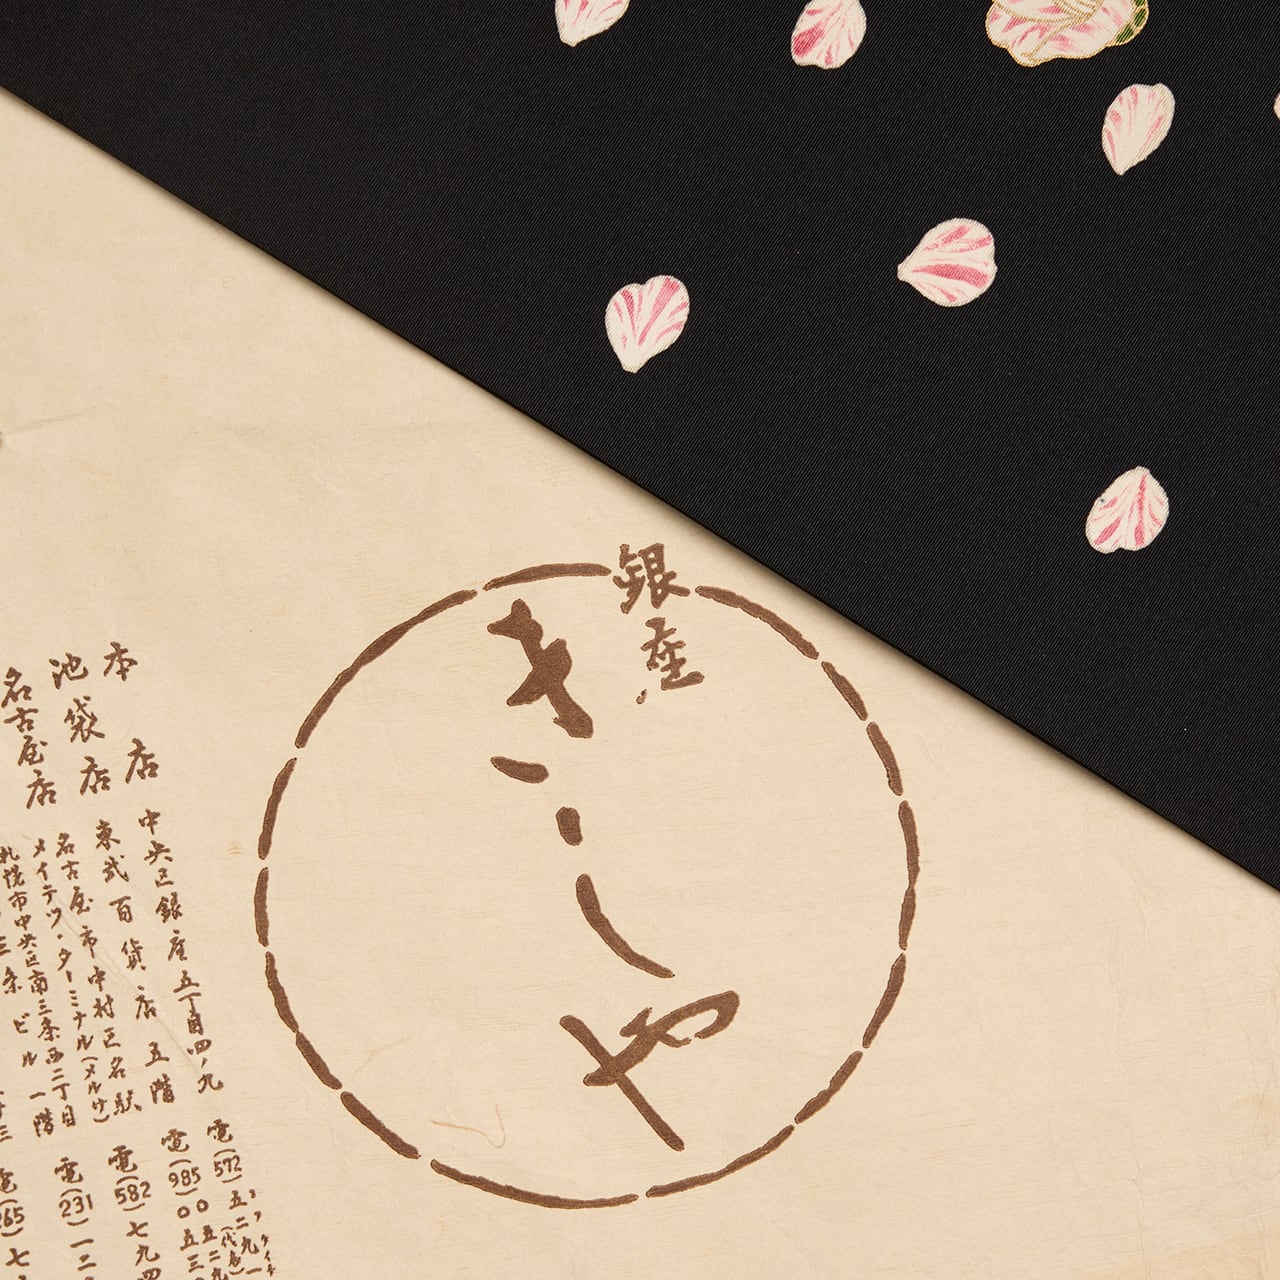 銀座
きしや
本店
中央区銀座五丁目四ノ九
電(572)五二九一
コフクイチ
(代表)
池袋店
東武百貨店五階
電(985)〇五二九
〇五三
名古屋店
名古屋市中村区名駅
メイテツ・ターミナル(メルサ)
電(582)七九四
札幌市中央区南三条西二丁目
三条ビル一階
電(231)一二
電(265)七